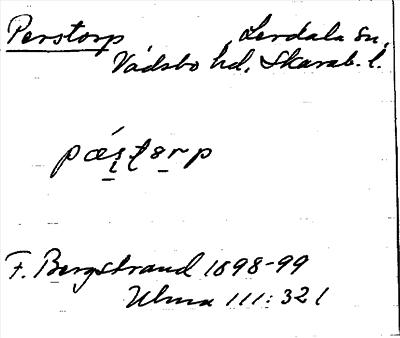 Perstorp Lerdala sn,
Vadsbo hd. Skarab. l.
pǽṣṭɐṟp
F. Bergstrand 1898-99
Ulma 111:321